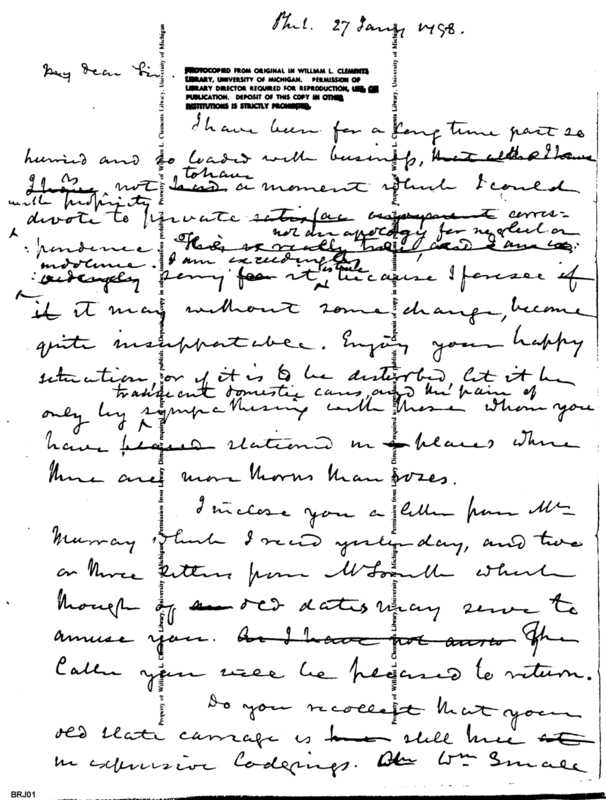 Phil. 27 Jany 1798.
My dear Sir.
PHOTOCOPIED FROM ORIGINAL IN WILLIAM L. CLEMENTS
LIBRARY, UNIVERSITY OF MICHIGAN. PERMISSION OF
LIBRARY DIRECTOR REQUIRED FOR REPRODUCTION, USE OR
PUBLICATION. DEPOSIT OF THIS COPY IN OTHER
INSTITUTIONS IS STRICTLY PROHIBITED.
I have been for a long time past so
hurried and so loaded with business,
as not to have a moment which I could
with propriety
devote to private corres=
not an apology for neglect or
:pondence. This is really
indolence. I am exceedingly
sorry for it because I foresee if
it may without some change, become
quite insupportable. Enjoy your happy
situation, or if it is to be disturbed let it be
transient domestic cares, and the pain of
only by sympathising with those whom you
have placed stationed in places where
there are more thorns than roses.
I inclose you a letter from Mr
Murray which I recd yesterday, and two
or three letters from which
though of an old date may serve to
amuse you. As I have not answ The
latter you will be pleased to return.
Do you recollect that your
old state carriage is still here at
in expensive lodgings. Wm Small
Property of William L. Clements Library, University of Michigan
BRJ01